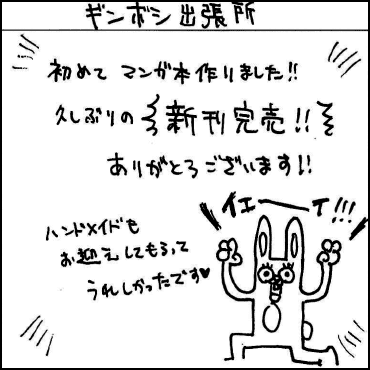 ギンボシ出張所
初めて マンガ本作りました!!
久しぶりの 新刊完売!!
ありがとうございます!!
イエーーイ!!!
ハンドメイドも
お迎えしてもらって
うれしかったです♥